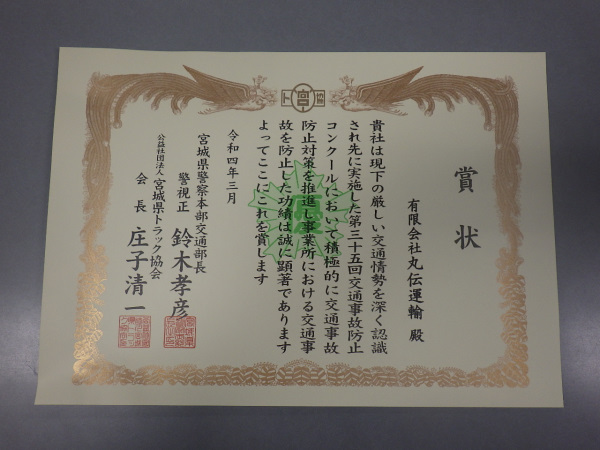 賞状
有限会社丸伝運輸 殿
貴社は現下の厳しい交通情勢を深く認識
され先に実施した第三十五回交通事故防止
コンクールにおいて積極的に交通事故
防止対策を推進し事業所における交通事
故を防止した功績は誠に顕著であります
よってここにこれを賞します
令和四年三月
宮城県警察本部交通部長
警視正 鈴木孝彦
公益社団法人 宮城県トラック協会
会長 庄子清一